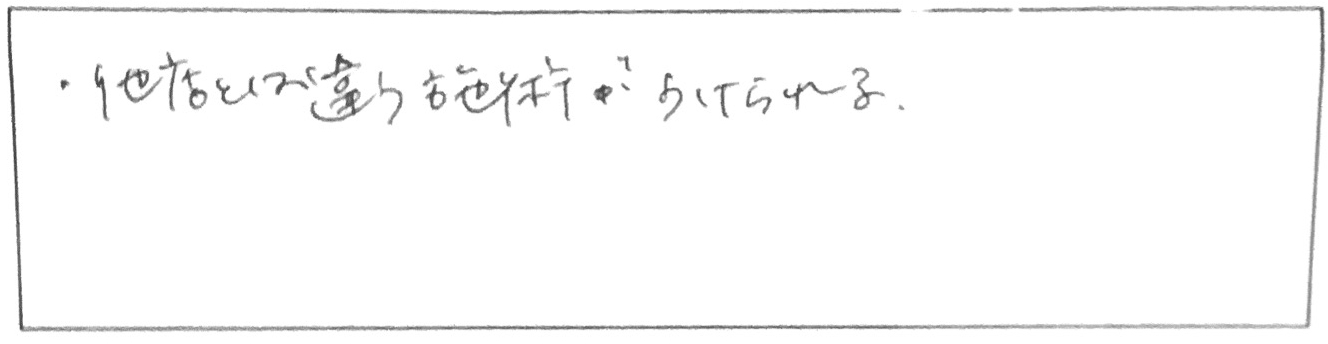 ・他店とは違う施術がうけられる.